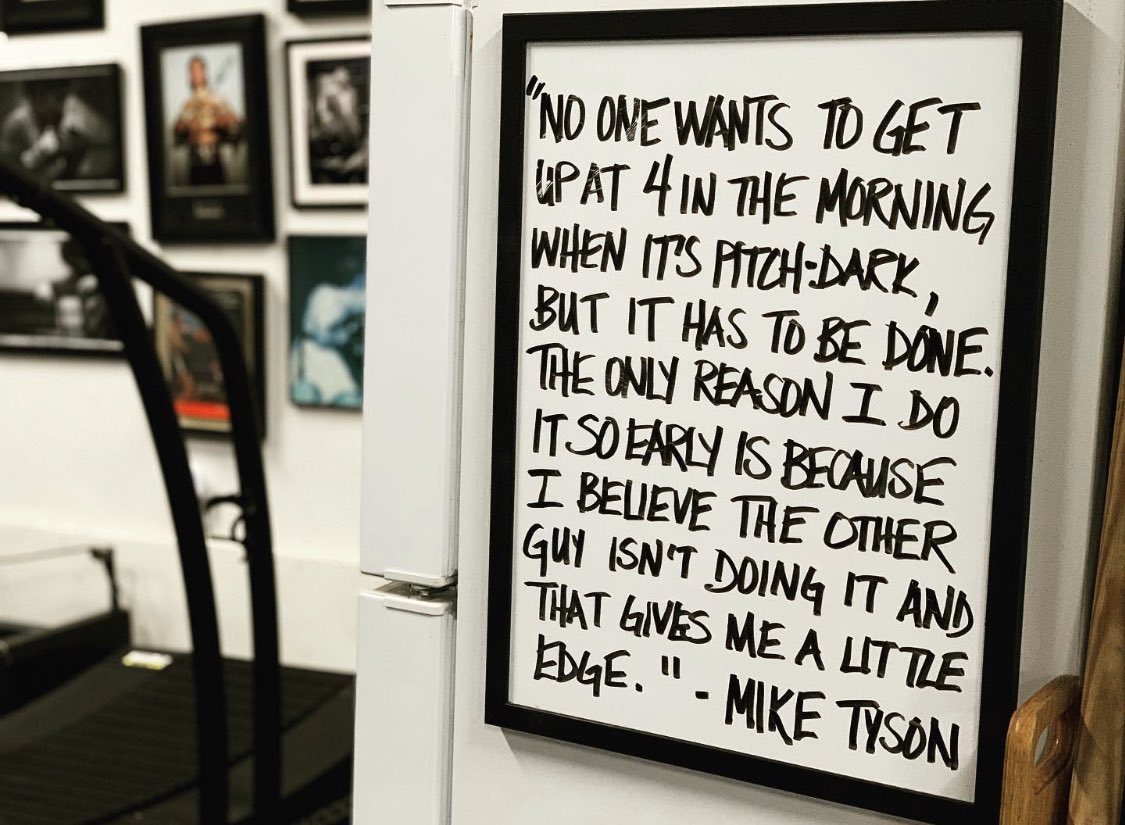 "NO ONE WANTS TO GET
UP AT 4 IN THE MORNING
WHEN IT'S PITCH-DARK,
BUT IT HAS TO BE DONE.
THE ONLY REASON I DO
IT SO EARLY IS BECAUSE
I BELIEVE THE OTHER
GUY ISN'T DOING IT AND
THAT GIVES ME A LITTLE
EDGE." - MIKE TYSON